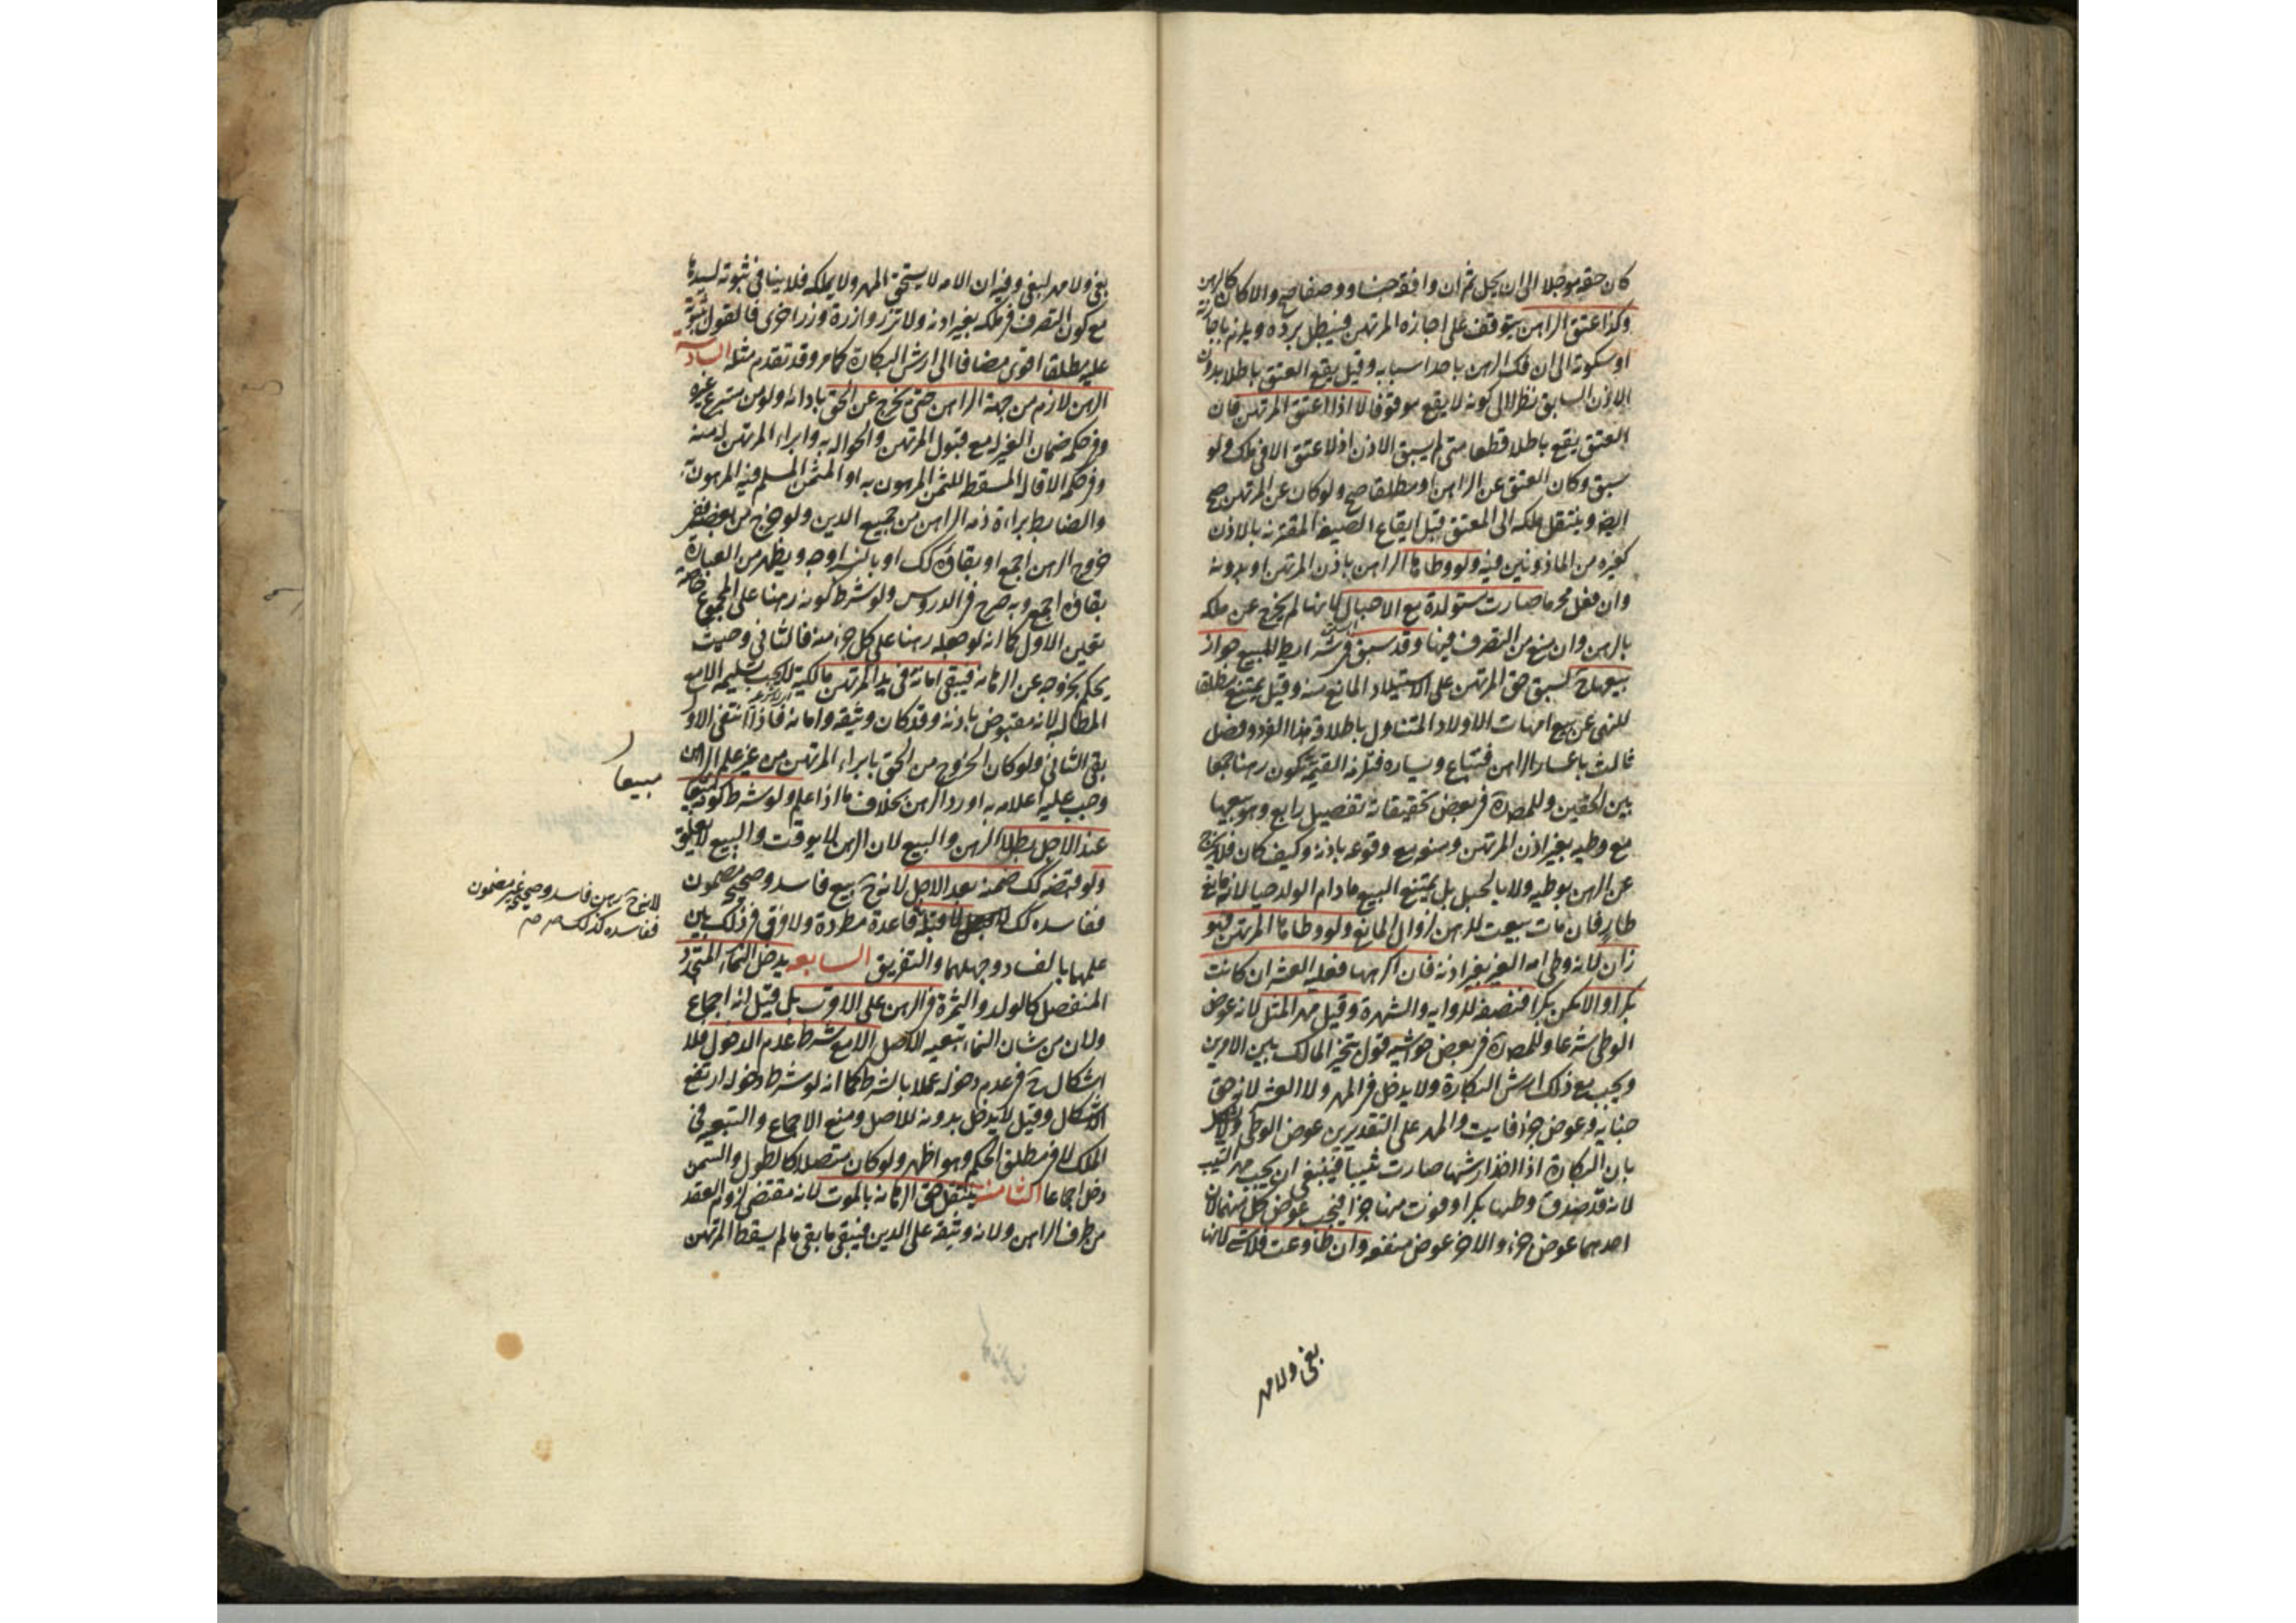 كان حقه موجلا الى ان يحل ثم ان وافقه جنسا ووصفا صح والا كان كالرهن
وكذا عتق الراهن يتوقف على اجازه المرتهن فيبطل برده ويلزم باجازته
او سكوته الى ان فك الرهن باحد اسبابه وقيل يقع العتق باطلا بدون
الاذن السابق نظرا الى كونه لا يقع موقوفا لا اذا اعتق المرتهن فان
العتق يقع باطلا قطعا متى لم يسبق الاذن اذ لا عتق الا في ملك ولو
سبق وكان العتق عن الراهن او مطلقا صح ولو كان عن المرتهن صح
ايضا وينتقل ملكه الى المعتق قبل ايقاع الصيغه المقترنه بالاذن
كغيره من الماذونين فيه ولو وطاها الراهن باذن المرتهن او بدونه
وان فعل محرما صارت مستولدة مع الاحبال لانها لم يخرج عن ملكه
بالرهن وان منع من التصرف فيها وقد سبق في شرائط المبيع جواز
بيعها ح لسبق حق المرتهن على الاستيلاد المانع منه وقيل يمتنع مطلقا
للنهى عن بيع امهات الاولاد المتناول باطلاقه هذا الفرد وفصل
ثالث باعسار الراهن فتباع ويساره فتلزمه القيمة تكون رهنا جمعا
بين الحقين وللمصره في بعض تحقيقاته تفصيل رابع وهو بيعها
مع وطيه بغير اذن المرتهن ومنعه مع وقوعه باذنه وكيف كان فلا يخرج
عن الرهن بوطيه ولا بالحبل بل يمتنع البيع ما دام الولد حيا لانه مانع
طار فان مات بيعت للرهن لزوال المانع ولو وطاها المرتهن فهو
زان لانه وطى امه الغير بغير اذنه فان اكرهها فعليه العشر ان كانت
بكرا والا يكن بكرا فنصفه للروايه والشهرة وقيل مهر المثل لانه عوض
الوطى شرعا وللمصره في بعض حواشيه قول يتخير المالك بين الامرين
ويجب مع ذلك ارش البكارة ولا يدخل في المهر ولا العشر لانه حق
جنايه وعوض جزء فايت والمهر على التقديرين عوض الوطى
بان البكارة اذا اخذ ارشها صارت ثيبا فينبغي ان يجب مهر الثيب
لانه قد صدق وطئها بكرا وفوت منها جزا فيجب عوض كل منهما لان
احدهما عوض جزء والاخر عوض منفعه وان طاوعت فلا شى لانها
بغى ولا مهر
بغى ولا مهر لبغى وفيه ان الامه لا يستحق المهر ولا يملكه فلا ينافى ثبوته لسيدها
مع كون التصرف في ملكه بغير اذنه ولا تزر وازرة وزر اخرى فالقول بثبوته
عليه مطلقا اقوى مضافا الى ارش البكارة كما مر وقد تقدم مثله السادسة
الرهن لازم من جهة الراهن حتى يخرج عن الحق بادائه ولو من متبرع غيره
وفى حكمه ضمان الغير له مع قبول المرتهن والحواله به وابراء المرتهن له منه
وفى حكمه الاقاله المسقطه للثمن المرهون به او المثمن المسلم فيه المرهون به
والضابط براءة ذمه الراهن من جميع الدين ولو خرج من بعضه ففى
خروج الرهن اجمع او بقاؤه كك او بالنسبة اوجه ويظهر من العبارة
بقاؤه اجمع وبه صرح في الدروس ولو شرط كونه رهنا على المجموع خاصة
تعين الاول كما انه لو جعله رهنا على كل جزء منه فالثانى وحيث
يحكم بخروجه عن الرهانه فيبقى امانة فى يد المرتهن مالكية لا يجب تسليمه الا مع
المطالبه لانه مقبوض باذنه وقد كان وثيقه وامانه فاذا انتفى الاول
بقى الثانى ولو كان الخروج من الحق بابراء المرتهن من غير علم الراهن
وجب عليه اعلامه به او رد الرهن بخلاف ما اذا علم ولو شرط كونه مبيعا
مبيعا
عند الاجل بطلا الرهن والبيع لان الرهن لا يوقت والبيع لا يعلق
ولو قبضه كك ضمنه بعد الاجل لانه ح بيع فاسد وصحيحه مضمون
ففاسده كك لا قبله قاعدة مطردة ولا فرق فى ذلك بين
لانه ح رهن فاسد وصحيحه غير مضمون
ففاسده كذلك صح صح
علمهما بالفساد وجهلهما والتفريق السابعه يدخل النماء المتجدد
المنفصل كالولد والثمرة فى الرهن على الاقرب بل قيل انه اجماع
ولان من شان النماء تبعيه الاصل الا مع شرط عدم الدخول فلا
اشكال ح فى عدم دخوله عملا بالشرط كما انه لو شرط دخوله ارتفع
الاشكال وقيل لا يدخل بدونه للاصل ومنع الاجماع والتبعيه فى
الملك لا فى مطلق الحكم وهو اظهر ولو كان متصلا كالطول والسمن
دخل اجماعا الثامنه ينتقل حق الرهانه بالموت لانه مقتضى لزوم العقد
من طرف الراهن ولانه وثيقه على الدين فيبقى ما بقى ما لم يسقطه المرتهن